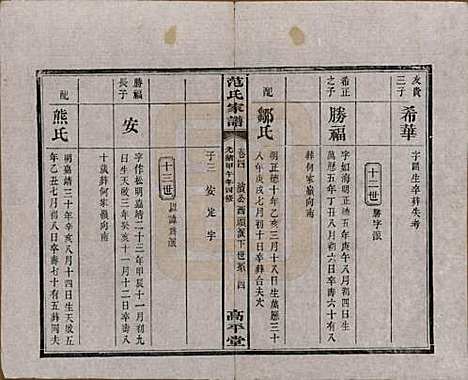 友貴
三子
希華
字闕生卒葬失考
十二世
勝字派
希正
之子
勝福
字如海明正德庚午八月初四日生
萬曆五年丁丑八月初六日卒壽六十有八
葬何家嶺向南
配
鄒氏
明正德十年乙亥三月十八日生萬曆三十
八年庚戌七月初十日卒葬合夫大
子三 安 定 字
范氏家譜
卷四
濱公酉頭派下世系
四
光緒甲午年四修
高平堂
十三世
以諱為派
勝福
長子
安
字作松明嘉靖二十三年甲辰十一月初九
日生天啟三年癸亥十一月十二日卒壽八
十歲葬何家嶺向南
配
熊氏
明嘉靖三十年辛亥八月十四日生天啟五
年乙丑七月初八日卒壽七十有五葬同夫